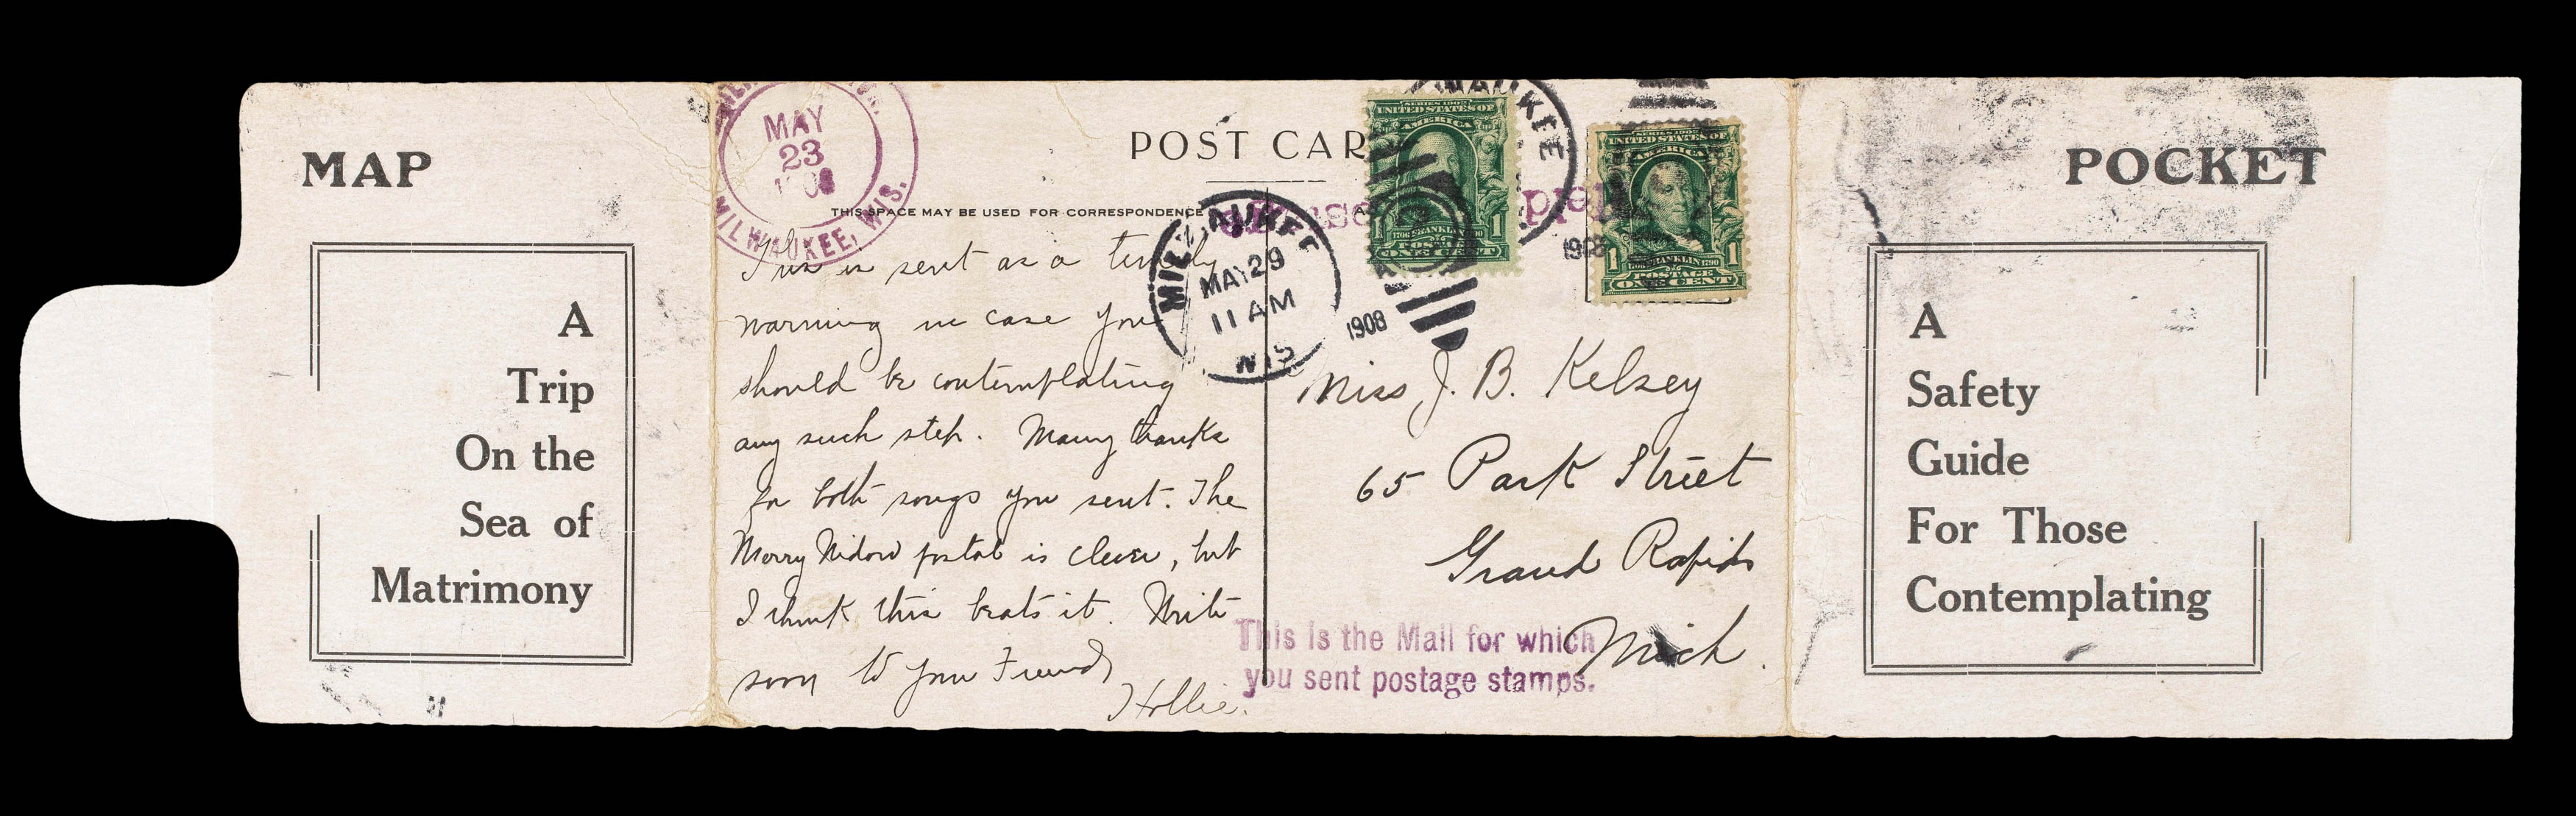 MAP
A
Trip
On the
Sea of
Matrimony
MAY
23
MILWAUKEE, WIS.
POST CAR
THIS SPACE MAY BE USED FOR CORRESPONDENCE
This is sent as a timely
warning in case you
should be contemplating
any such step. Many thanks
for both songs you sent. The
Merry Widow postal is clever, but
I think this beats it. Write
soon to your Friend,
Hollie.
MILWAUKEE
MAY 29
11 AM
WIS
1908
SERIES 1902
UNITED STATES OF
AMERICA
1 1706 FRANKLIN 1790 1
POSTAGE
ONE CENT
1908
SERIES 1902
UNITED STATES OF
AMERICA
1 1706 FRANKLIN 1790 1
POSTAGE
ONE CENT
Miss J. B. Kelsey
65 Park Street
Grand Rapids
Mich.
This is the Mail for which
you sent postage stamps.
POCKET
A
Safety
Guide
For Those
Contemplating